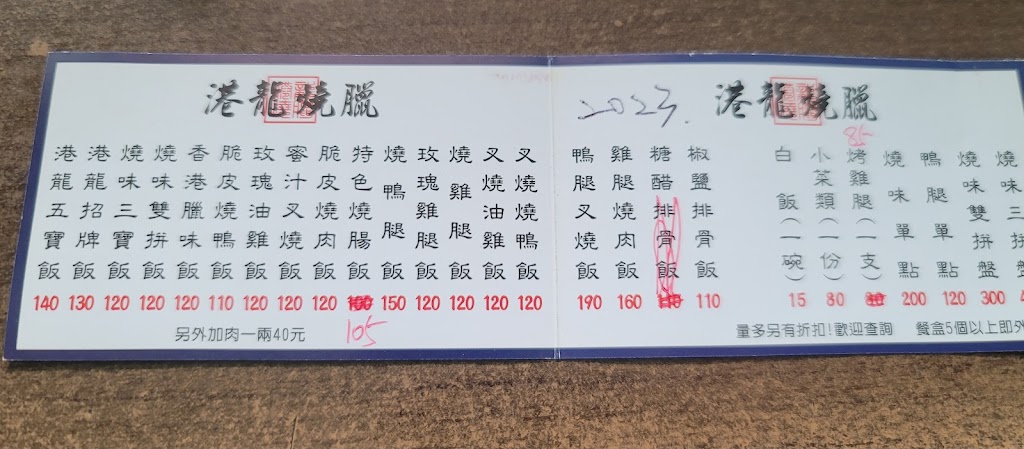 港龍燒臘
港龍五寶飯 140
港龍招牌飯 130
燒味三寶飯 120
燒味雙拼飯 120
香港臘味飯 120
脆皮燒鴨飯 110
玫瑰油雞飯 120
蜜汁叉燒飯 120
脆皮燒肉飯 120
特色燒腸飯 105
燒鴨腿飯 150
玫瑰雞腿飯 120
燒雞腿飯 120
叉燒油雞飯 120
叉燒燒鴨飯 120
另外加肉一兩40元
2023.
港龍燒臘
鴨腿叉燒飯 190
雞腿燒肉飯 160
糖醋排骨飯
椒鹽排骨飯 110
白飯(一碗) 15
小菜類(一份) 30
烤雞腿(一支) 85
燒味單點 200
鴨腿單點 120
燒味雙拼盤 300
燒味三
量多另有折扣!歡迎查詢 餐盒5個以上即外